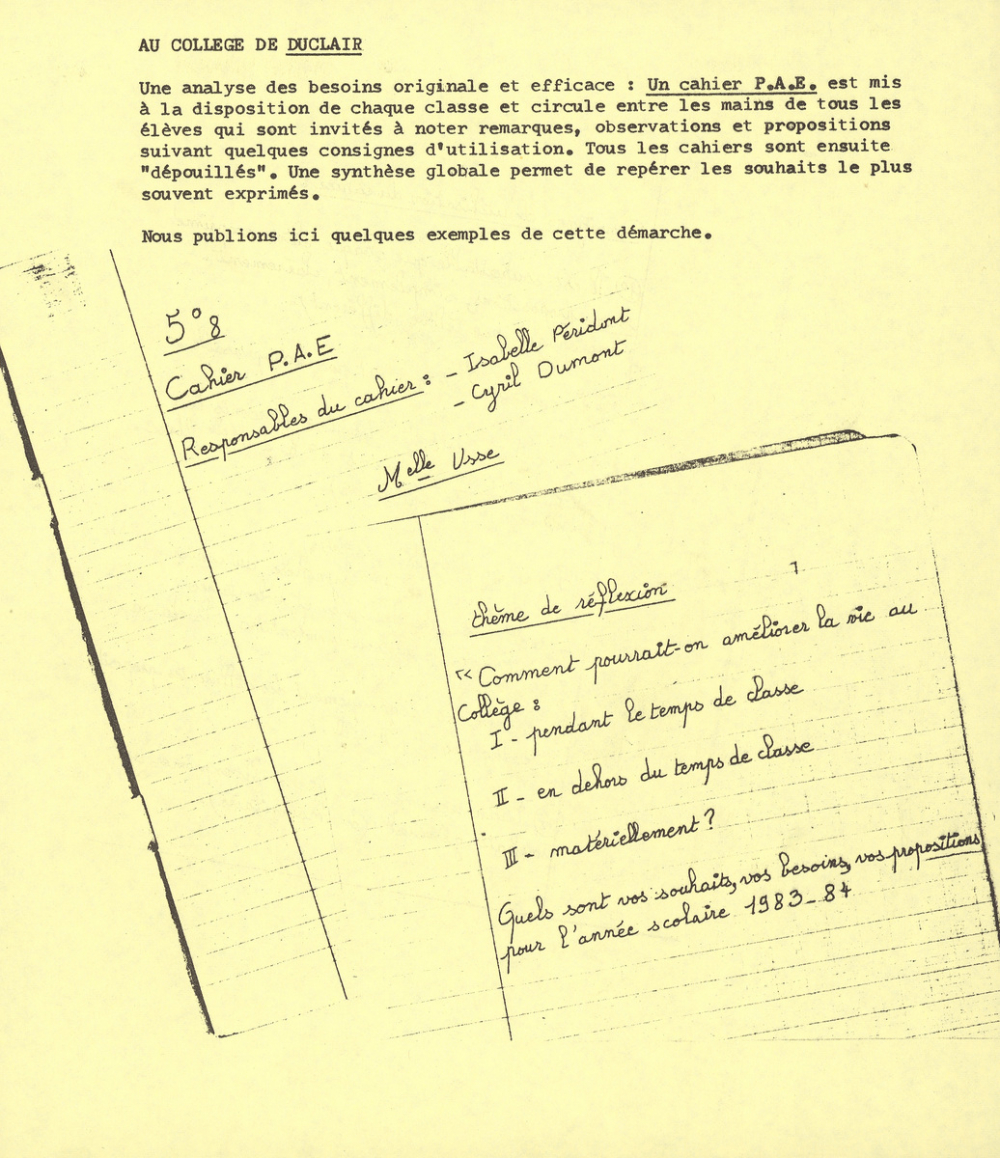 AU COLLEGE DE DUCLAIR
Une analyse des besoins originale et efficace : Un cahier P.A.E. est mis
à la disposition de chaque classe et circule entre les mains de tous les
élèves qui sont invités à noter remarques, observations et propositions
suivant quelques consignes d'utilisation. Tous les cahiers sont ensuite
"dépouillés". Une synthèse globale permet de repérer les souhaits le plus
souvent exprimés.
Nous publions ici quelques exemples de cette démarche.
5° 8
Cahier P.A.E
Responsables du cahier : - Isabelle Péridont
- Cyril Dumont
Melle Usse
1
thème de réflexion
"Comment pourrait-on améliorer la vie au
Collège :
I - pendant le temps de classe
II - en dehors du temps de classe
III - matériellement ?
Quels sont vos souhaits, vos besoins, vos propositions
pour l'année scolaire 1983-84